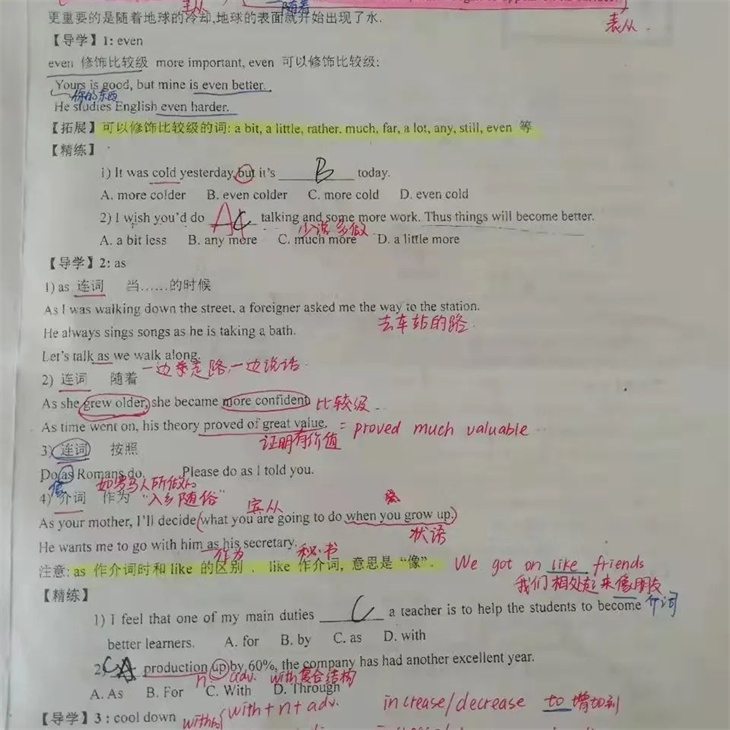 表从
随着
更重要的是随着地球的冷却,地球的表面就开始出现了水.
表从.
【导学】1: even
even 修饰比较级 more important, even 可以修饰比较级:
Yours is good, but mine is even better.
你的东西
He studies English even harder.
【拓展】可以修饰比较级的词: a bit, a little, rather. much, far, a lot, any, still, even 等
【精练】
1) It was cold yesterday, but it's B today.
A. more colder B. even colder C. more cold D. even cold
2) I wish you'd do talking and some more work. Thus things will become better.
少说多做
A. a bit less B. any more C. much more D. a little more
【导学】2: as
1) as 连词 当……的时候
As I was walking down the street, a foreigner asked me the way to the station.
去车站的路.
He always sings songs as he is taking a bath.
Let's talk as we walk along.
一边走路一边说话
2) 连词 随着
As she grew older, she became more confident 比较级
As time went on, his theory proved of great value. = proved much valuable
证明有价值
3) 连词 按照
Do as Romans do. Please do as I told you.
像 如罗马人所做
4) 介词 作为 "入乡随俗"
宾从
As your mother, I'll decide what you are going to do when you grow up.
状语
He wants me to go with him as his secretary.
作为 秘书
注意: as 作介词时和 like 的区别 . like 作介词, 意思是 "像". We got on like friends
我们相处起来像朋友
【精练】
1) I feel that one of my main duties C a teacher is to help the students to become 介词
better learners. A. for B. by C. as D. with
2) production up by 60%, the company has had another excellent year.
n adv. with复合结构
A. As B. For C. With D. Through
【导学】3 : cool down
with+n+adv. increase/decrease to 增加到